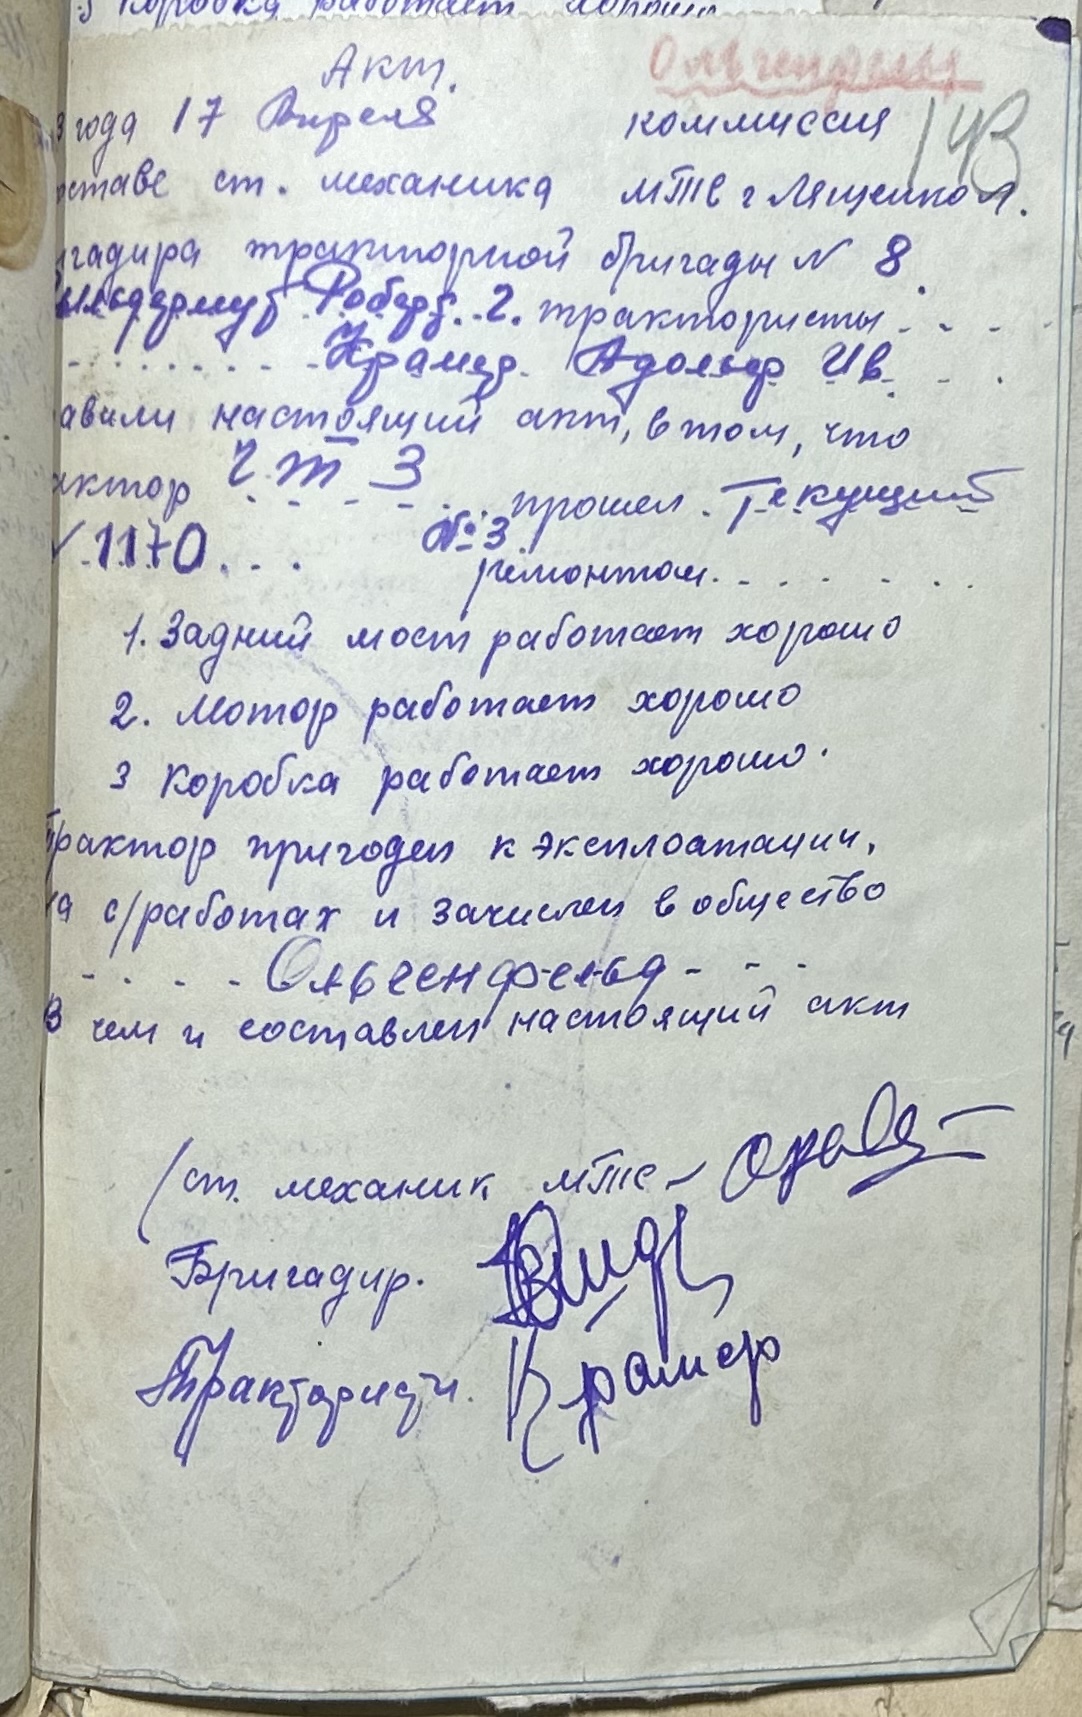 3 Коробка работает хорошо
Акт. Ольгенфельд
3 года 17 Апреля коммиссия 143
оставе ст. механика МТС г Лященко А.
игадира тракторной бригады № 8
Роберт. г. трактористы
Крамер. Адольф Ив.
авили настоящий акт, в том, что
актор ЧТЗ прошел Текущий
№ 1170 №3 ремонтом
1. Задний мост работает хорошо
2. Мотор работает хорошо
3 Коробка работает хорошо.
Трактор пригоден к эксплоатации,
на с/работах и зачислен в общество
Ольгенфельд
В чем и составлен настоящий акт
ст. механик МТС
Бригадир.
Трактористы. Крамер